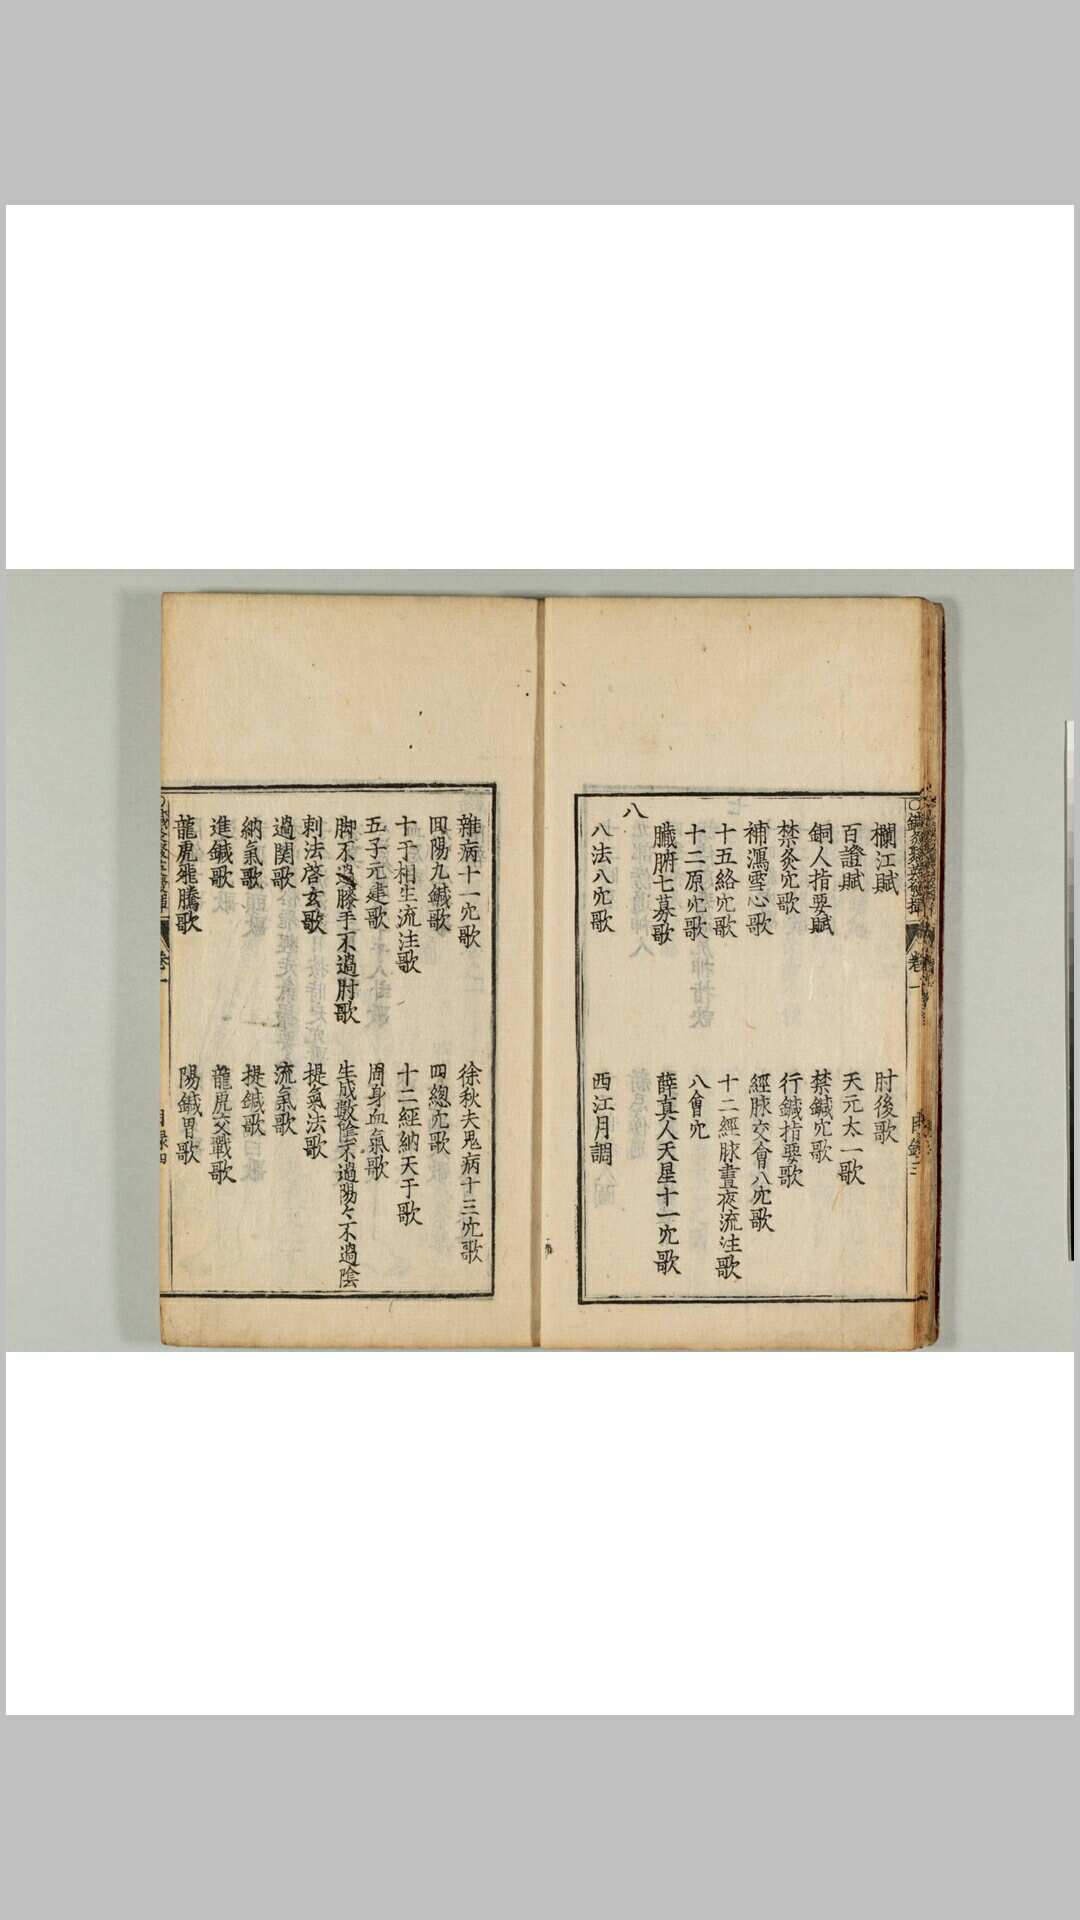 欄江賦
肘後歌
百證賦
天元太一歌
銅人指要賦
禁鍼穴歌
禁灸穴歌
行鍼指要歌
補瀉雪心歌
經脉交會八穴歌
十五絡穴歌
十二經脉晝夜流注歌
十二原穴歌
八會穴
臟腑七募歌
薛真人天星十一穴歌
八
八法八穴歌
西江月調
卷一
目錄三
雜病十一穴歌
徐秋夫鬼病十三穴歌
回陽九鍼歌
四總穴歌
十干相生流注歌
十二經納天干歌
五子元建歌
周身血氣歌
脚不過膝手不過肘歌
生成數陰不過陽々不過陰
刺法啓玄歌
提氣法歌
過関歌
流氣歌
納氣歌
提鍼歌
進鍼歌
龍虎交戰歌
龍虎飛騰歌
陽鍼胃歌
卷一
目錄四